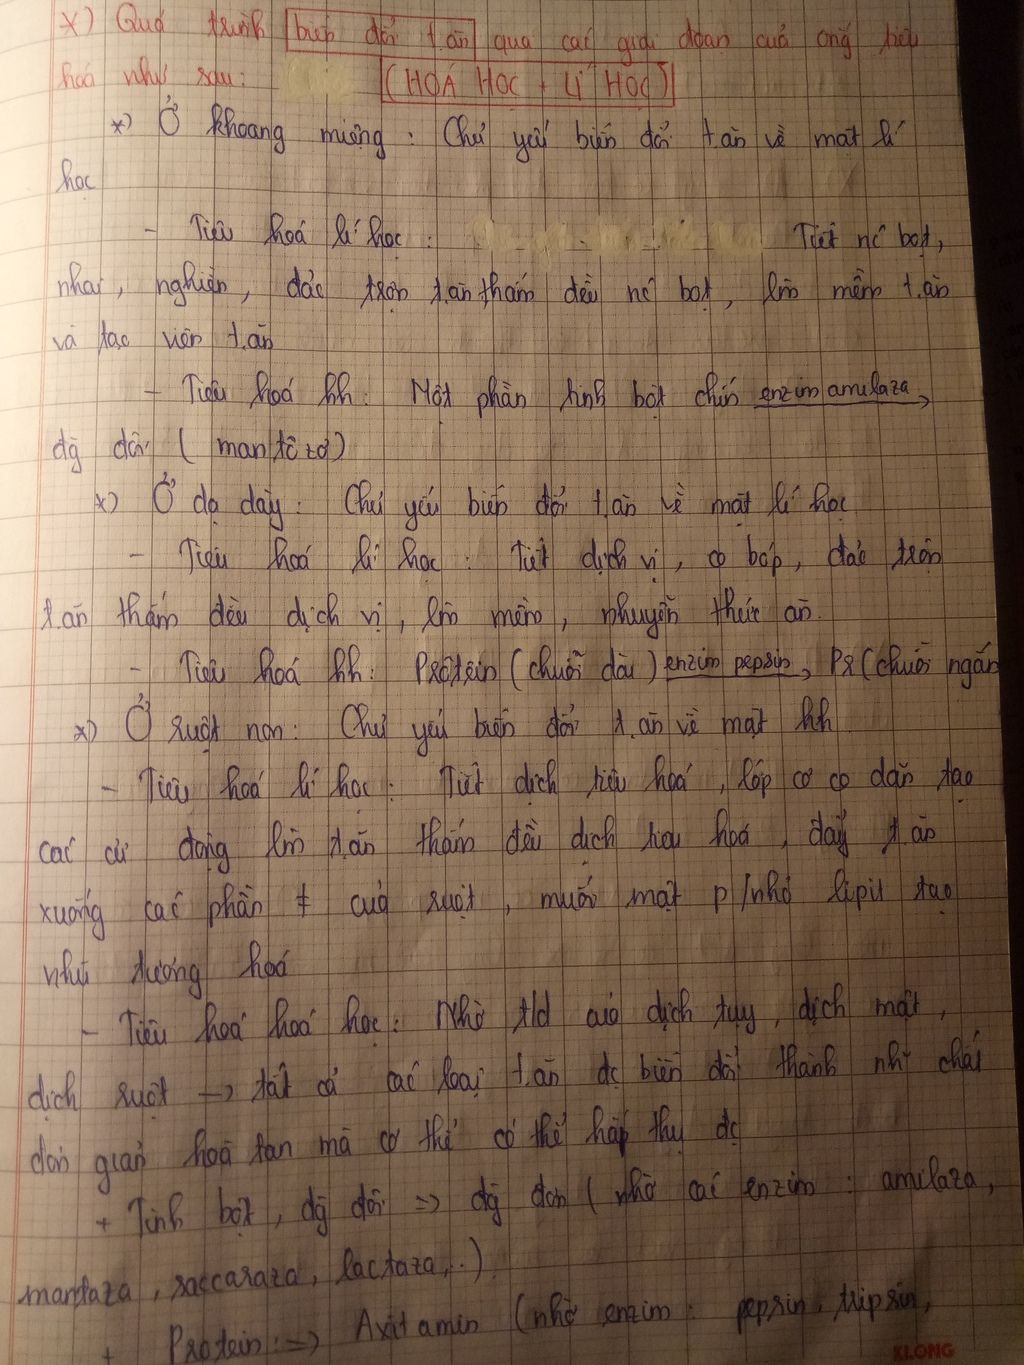 *) Quá trình biến đổi t.ăn qua các giai đoạn của ống tiêu
hoá như sau: (HOÁ HỌC + LÍ HỌC)
*) Ở khoang miệng: Chủ yếu biến đổi t.ăn về mặt lí
học
- Tiêu hoá lí học: Tiết nc bọt,
nhai, nghiền, đảo trộn t.ăn thấm đều nc bọt, lm mềm t.ăn
và tạo viên t.ăn
- Tiêu hoá hh: Một phần tinh bột chín enzim amilaza
đg đôi (mantôzơ)
*) Ở dạ dày: Chủ yếu biến đổi t.ăn về mặt lí học
- Tiêu hoá lí học: Tiết dịch vị, co bóp, đảo trộn
t.ăn thấm đều dịch vị, lm mềm, nhuyễn thức ăn.
- Tiêu hoá hh: Prôtêin (chuỗi dài) enzim pepsin, Pr (chuỗi ngắn
*) Ở ruột non: Chủ yếu biến đổi t.ăn về mặt hh
- Tiêu hoá lí học: Tiết dịch tiêu hoá, lớp cơ co dãn tạo
các cử động lm t.ăn thấm đều dịch tiêu hoá, đẩy t.ăn
xuống các phần ≠ của ruột, muối mật p/nhỏ lipit tạo
nhũ tương hoá
- Tiêu hoá hoá học: Nhờ t/d của dịch tụy, dịch mật,
dịch ruột → tất cả các loại t.ăn đc biến đổi thành nh~ chất
đơn giản hoà tan mà cơ thể có thể hấp thụ đc
+ Tinh bột, đg đôi => đg đơn (nhờ các enzim: amilaza,
mantaza, saccaraza, lactaza,..)
+ Protein => Axit amin (nhờ enzim: pepsin, tripsin,
KLONG